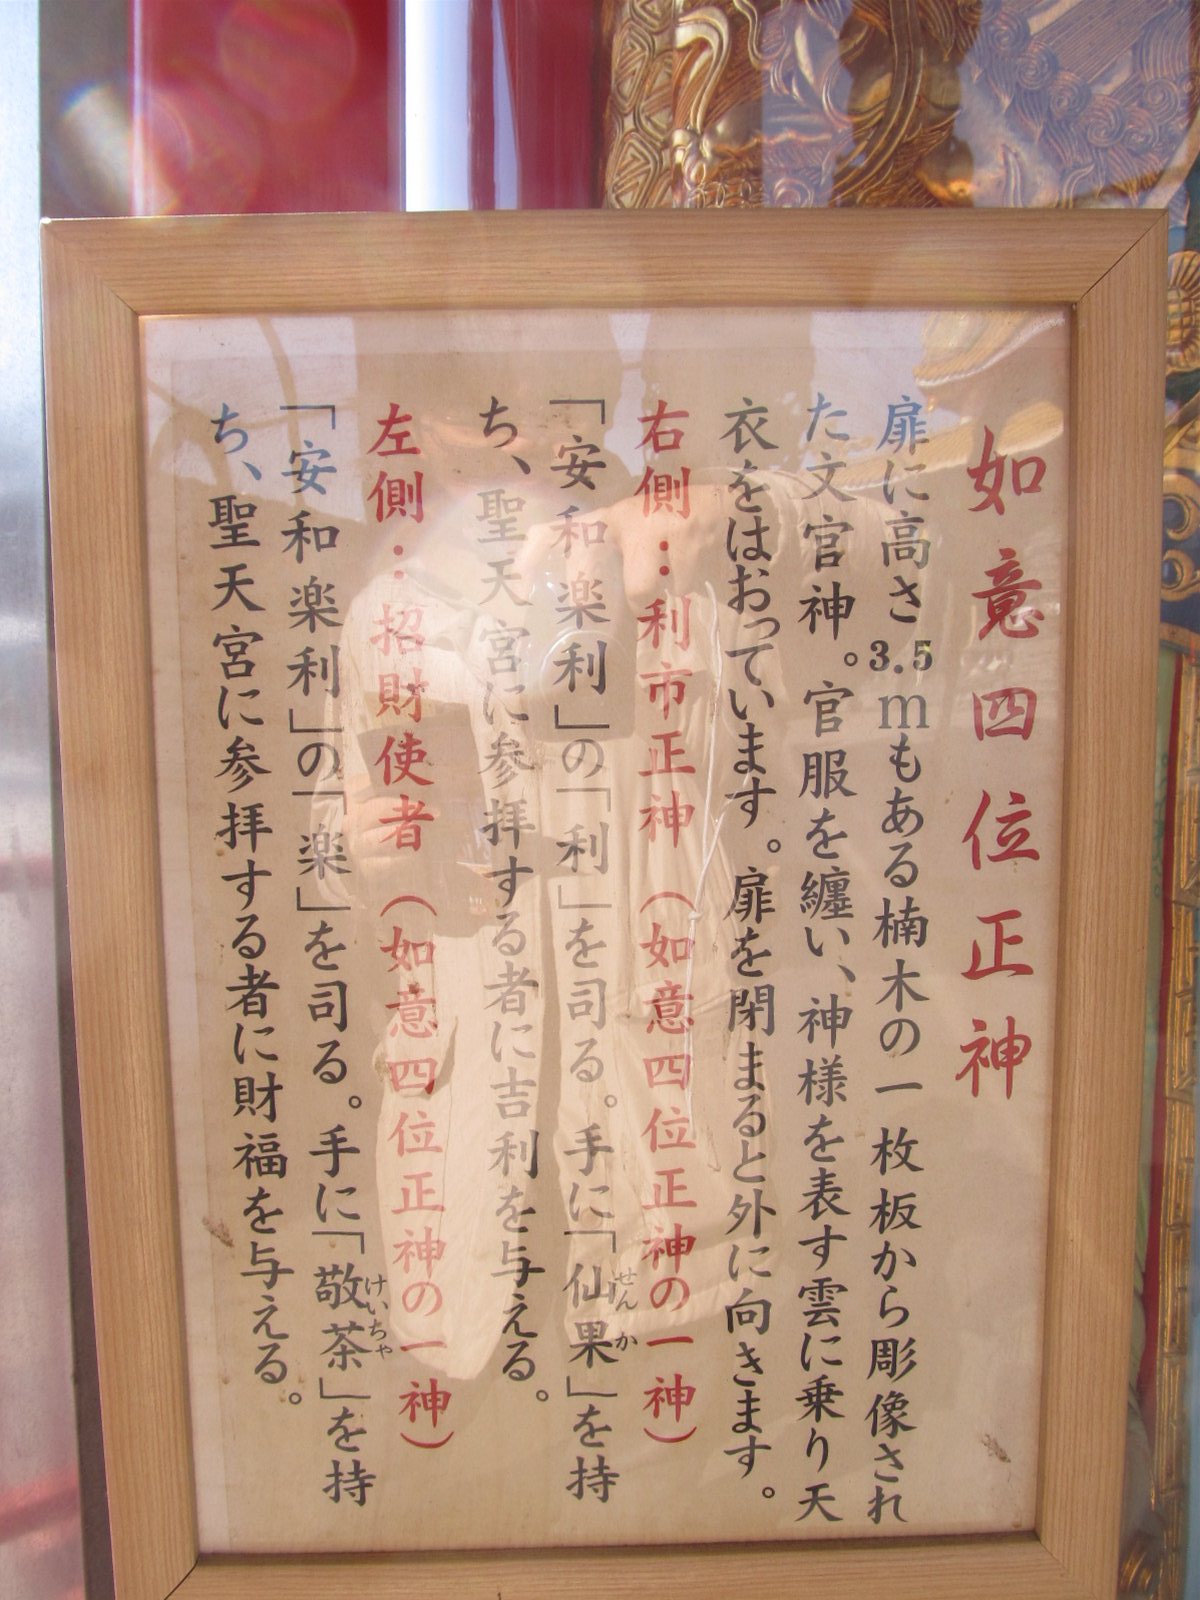 如意四位正神
扉に高さ3.5mもある楠木の一枚板から彫像され
た文官神。官服を纏い、神様を表す雲に乗り天
衣をはおっています。扉を閉まると外に向きます。
右側：利市正神（如意四位正神の一神）
「安和楽利」の「利」を司る。手に「仙果」を持
せんか
ち、聖天宮に参拝する者に吉利を与える。
左側：招財使者（如意四位正神の一神）
「安和楽利」の「楽」を司る。手に「敬茶」を持
けいちゃ
ち、聖天宮に参拝する者に財福を与える。